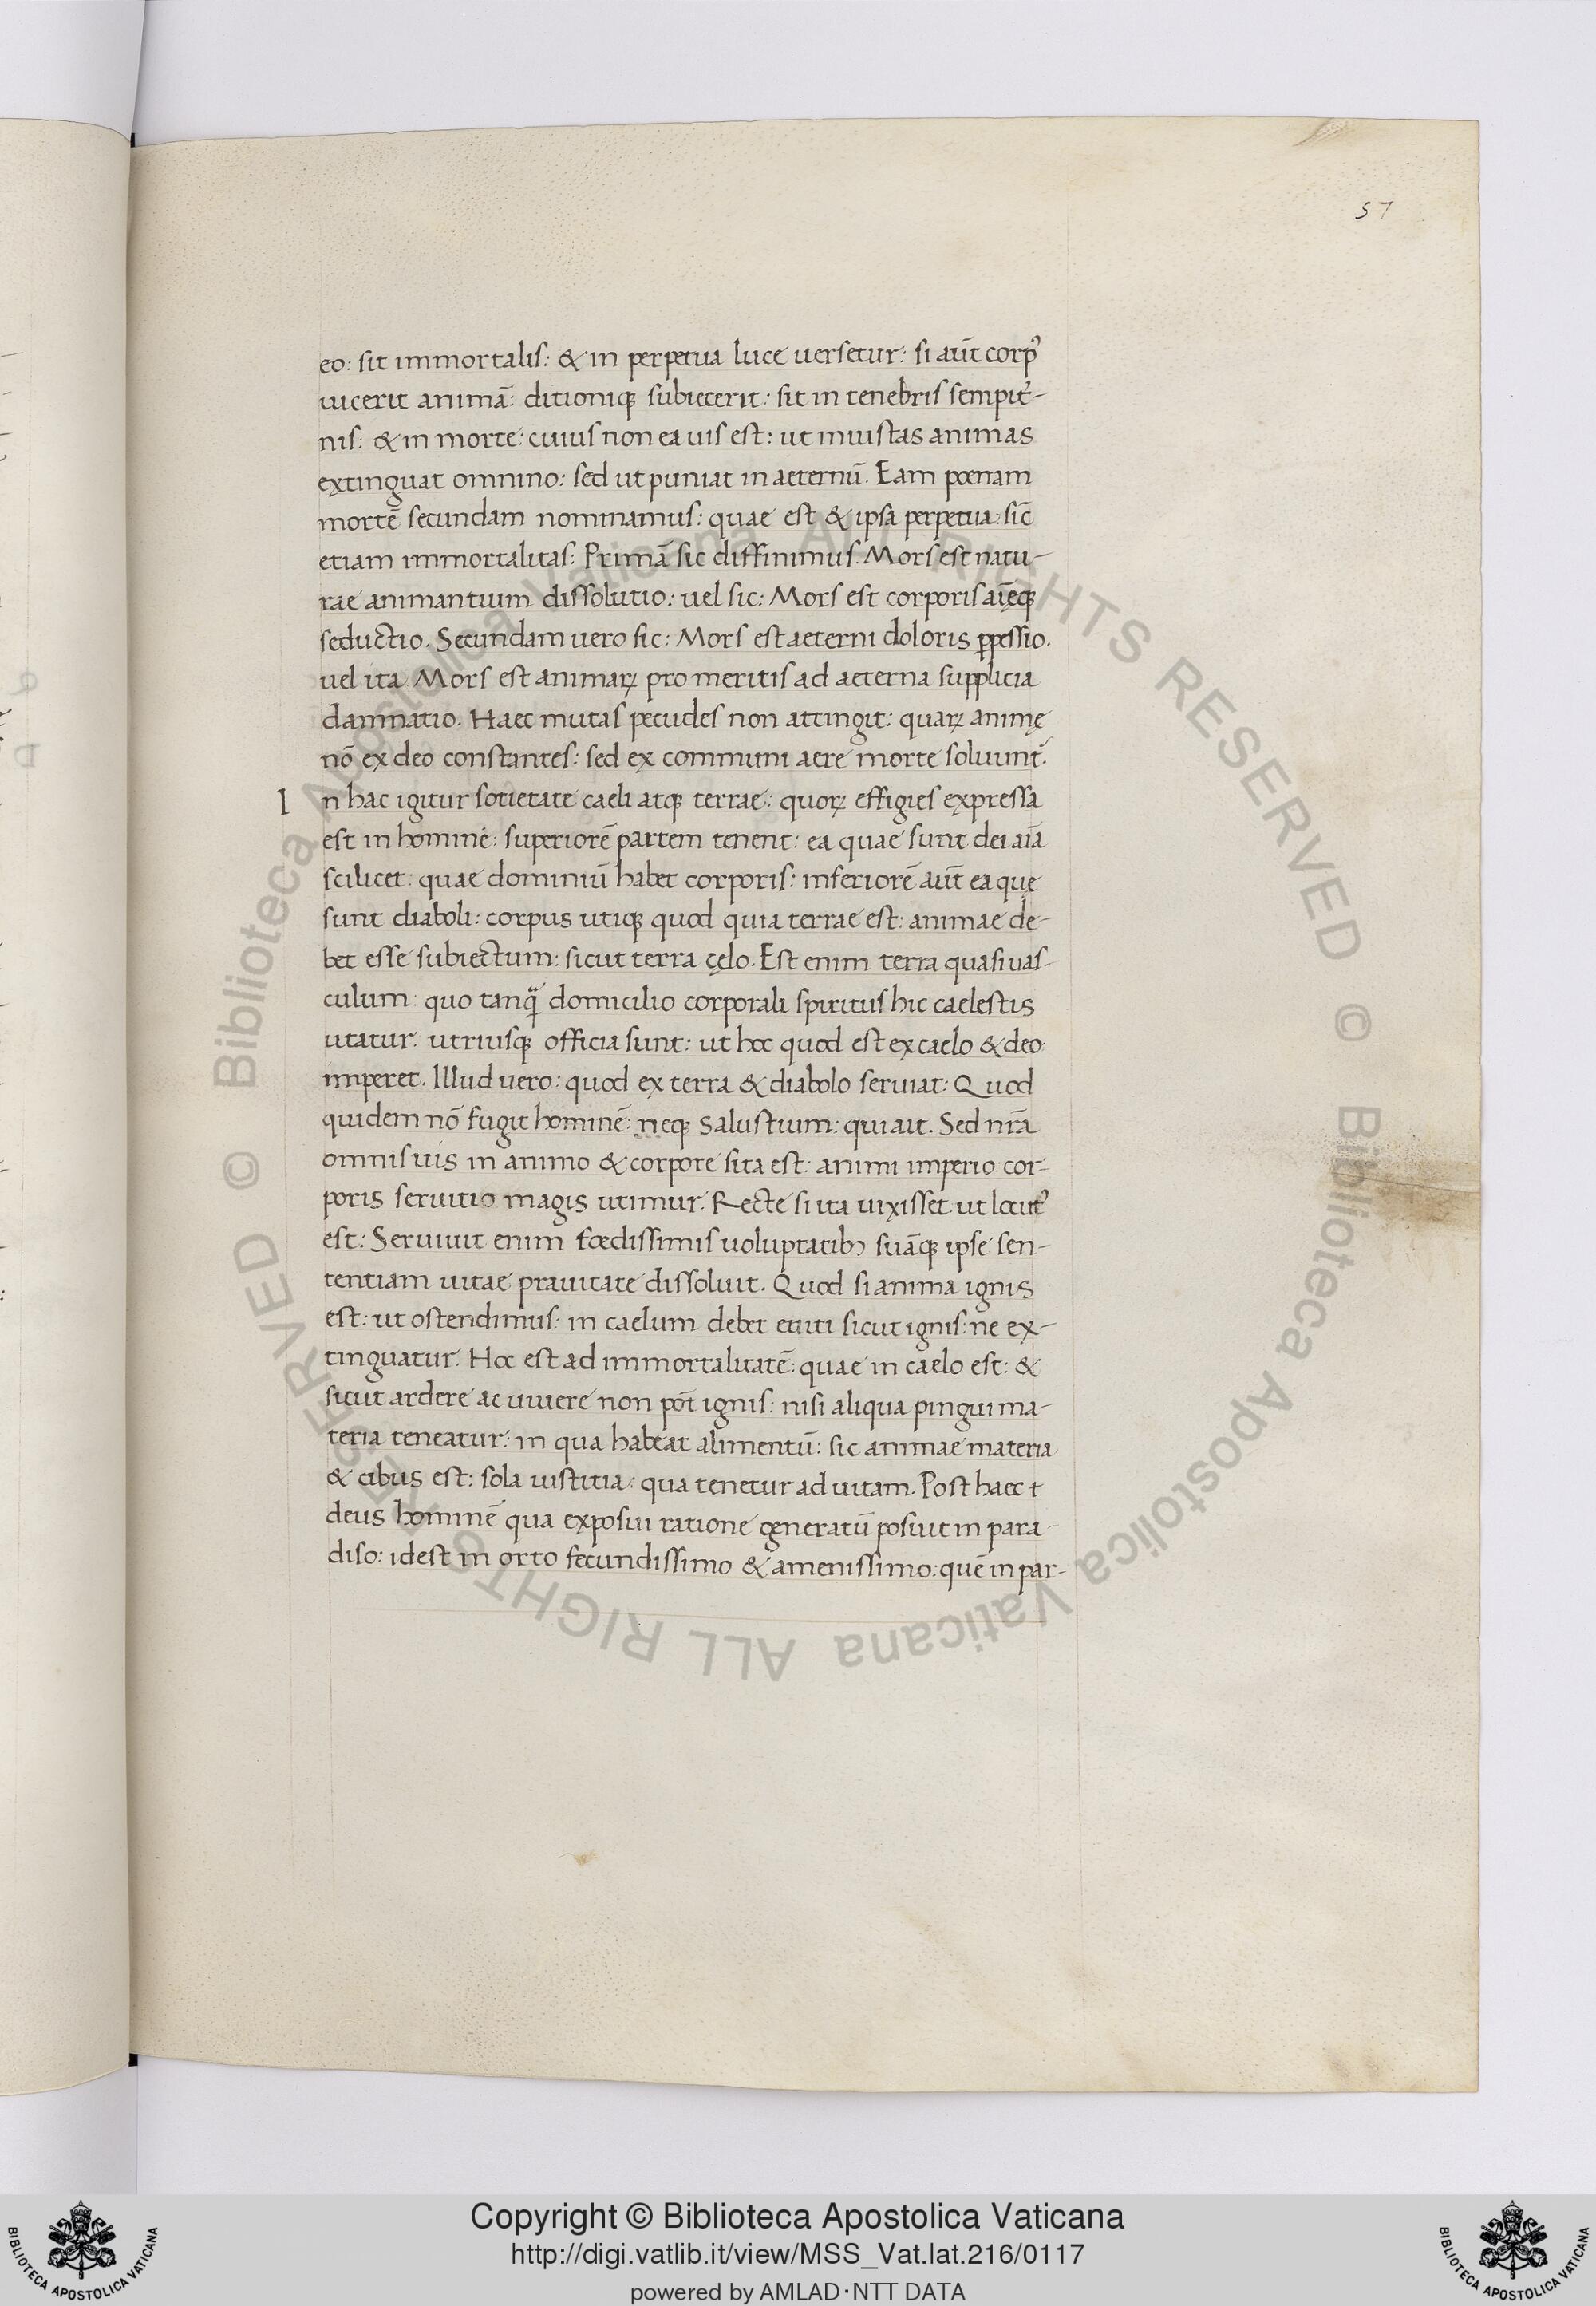 57
eo: sit immortalis: & in perpetua luce uersetur: si aut̄ corpꝰ
uicerit animā: ditioniqꝫ subiecerit: sit in tenebris sempit̉-
nis: & in morte: cuius non ea uis est: ut iniustas animas
extinguat omnino: sed ut puniat in aeternū. Eam poenam
mortē secundam nominamus: quae est & ipsa perpetua: sic̄
etiam immortalitas: Primā sic diffinimus. Mors est natu-
rae animantium dissolutio: uel sic: Mors est corporis aīęqꝫ
seductio. Secundam uero sic: Mors est aeterni doloris ꝑpessio.
uel ita. Mors est animaꝝ pro meritis ad aeterna supplicia
damnatio. Haec mutas pecudes non attingit: quaꝝ animę
nō ex deo constantes: sed ex communi aere morte soluunt᷑.
In hac igitur sotietate caeli atqꝫ terrae: quoꝝ effigies expressa
est in homine: superiorē partem tenent: ea quae sunt dei aīa
scilicet: quae dominiū habet corporis: inferiorē aut̄ ea quę
sunt diaboli: corpus utiqꝫ quod quia terrae est: animae de-
bet esse subiectum: sicut terra cęlo. Est enim terra quasi uas-
culum: quo tanꝙ̄ domicilio corporali spiritus hic caelestis
utatur. utriusqꝫ officia sunt: ut hoc quod est ex caelo & deo
imperet. Illud uero: quod ex terra & diabolo seruiat: Quod
quidem nō fugit hominē: neqꝫ Salustium: qui ait. Sed nr̄a
omnis uis in animo & corpore sita est: animi imperio: cor-
poris seruitio magis utimur. Recte si ita uixisset. ut locutꝰ
est: Seruiuit enim foedissimis uoluptatibꝫ suāqꝫ ipse sen-
tentiam uitae prauitate dissoluit. Quod si anima ignis
est: ut ostendimus: in caelum debet eniti sicut ignis: ne ex-
tinguatur. Hoc est ad immortalitatē: quae in caelo est: &
sicut ardere ac uiuere non pōt ignis: nisi aliqua pingui ma-
teria teneatur: in qua habeat alimentū: sic animae materia
& cibus est: sola iustitia: qua tenetur ad uitam. Post haec t
deus hominē qua exposui ratione generatū posuit in para-
diso: idest in orto fecundissimo & amenissimo: quē in par-
© Biblioteca Apostolica Vaticana ALL RIGHTS RESERVED © Biblioteca Apostolica Vaticana ALL RIGHTS RESERVED
Copyright © Biblioteca Apostolica Vaticana
http://digi.vatlib.it/view/MSS_Vat.lat.216/0117
powered by AMLAD·NTT DATA
BIBLIOTECA APOSTOLICA VATICANA
BIBLIOTECA APOSTOLICA VATICANA